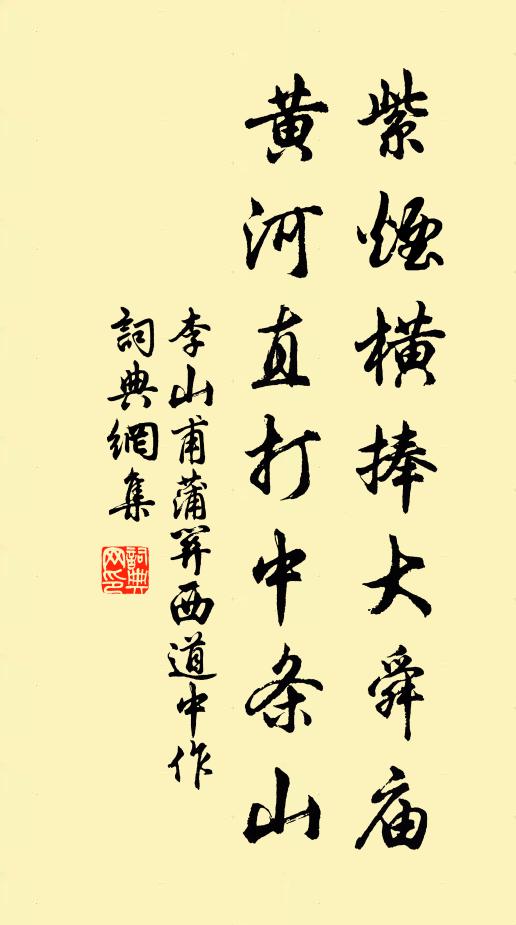 紫煙橫捧大舜庙
黄河直打中条山
李山甫蒲關西道中作
詞典網集
詞典
网印